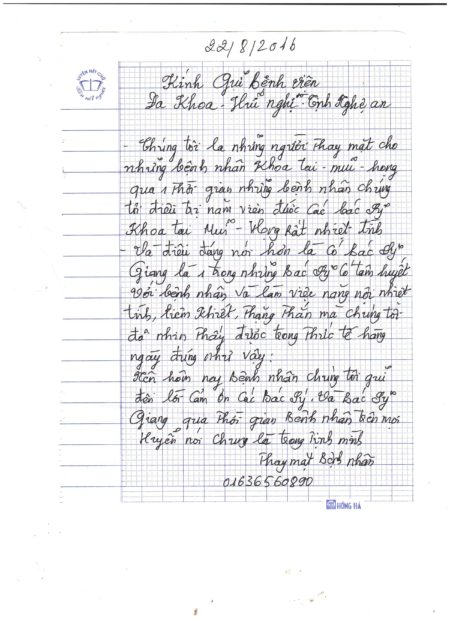 22/8/2016
Kính Gửi Bệnh viện
Đa Khoa - Hữu nghị - Tỉnh Nghệ an
- Chúng tôi là những người Thay mặt cho
những bệnh nhân Khoa tai - mũi - họng
qua 1 Thời gian những bệnh nhân chúng
tôi điều trị nằm viện được Các bác sỹ
Khoa tai Mũi - Họng Rất nhiệt tình
- Và điều đáng nói hơn là Có bác sỹ
Giang là 1 trong những bác sỹ Có tâm huyết
với bệnh nhân và làm việc năng nổi nhiệt
tình, liêm Khiết, Thẳng Thắn mà chúng tôi
đã nhìn Thấy được trong Thực tế hàng
ngày đúng như vậy:
Nên hôm nay Bệnh nhân chúng tôi gửi
đến lời Cảm ơn Các Bác sỹ. Và Bác sỹ
Giang qua Thời gian Bệnh nhân trên mọi
Huyển nói Chung là trong
Thay mặt Bệnh nhân
01636560890
HỒNG HÀ